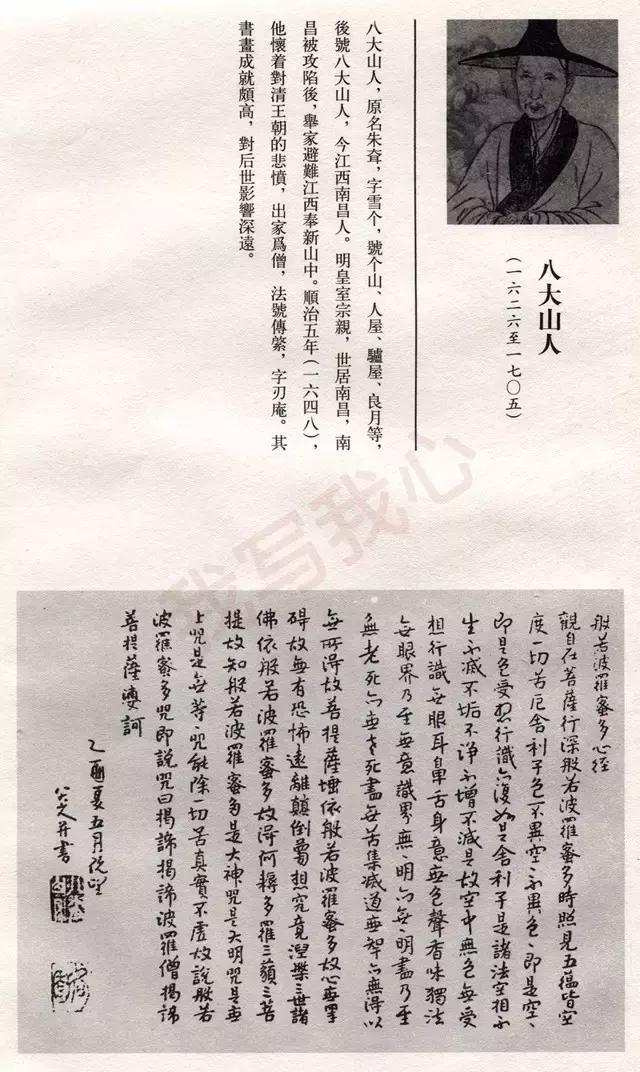 八大山人
（一六二六至一七〇五）
八大山人，原名朱耷，字雪个，號个山、人屋、驢屋、良月等，
後號八大山人，今江西南昌人。明皇室宗親，世居南昌，南
昌被攻陷後，舉家避難江西奉新山中。順治五年（一六四八），
他懷着對清王朝的悲憤，出家爲僧，法號傳綮，字刃庵。其
書畫成就頗高，對后世影響深遠。
我写我心
般若波羅蜜多心經
觀自在菩薩行深般若波羅蜜多時照見五蘊皆空
度一切苦厄舍利子色不異空〻不異色〻即是空〻
即是色受想行識亦復如是舍利子是諸法空相不
生不滅不垢不淨不增不減是故空中無色無受
想行識無眼耳鼻舌身意無色聲香味獨法
無眼界乃至無意識界無〻明亦無〻明盡乃至
無老死亦無老死盡無苦集滅道無智亦無得以
無所得故菩提薩埵依般若波羅蜜多故心無罣
礙故無有恐怖遠離顛倒夢想究竟涅槃三世諸
佛依般若波羅蜜多故得何耨多羅三藐三菩
提故知般若波羅蜜多是大神咒是大明咒是無
上咒是無等〻咒能除一切苦真實不虛故說般若
波羅蜜多咒即說咒曰揭諦揭諦波羅僧揭諦
菩提薩婆訶
乙酉夏五月既望
八大山人書